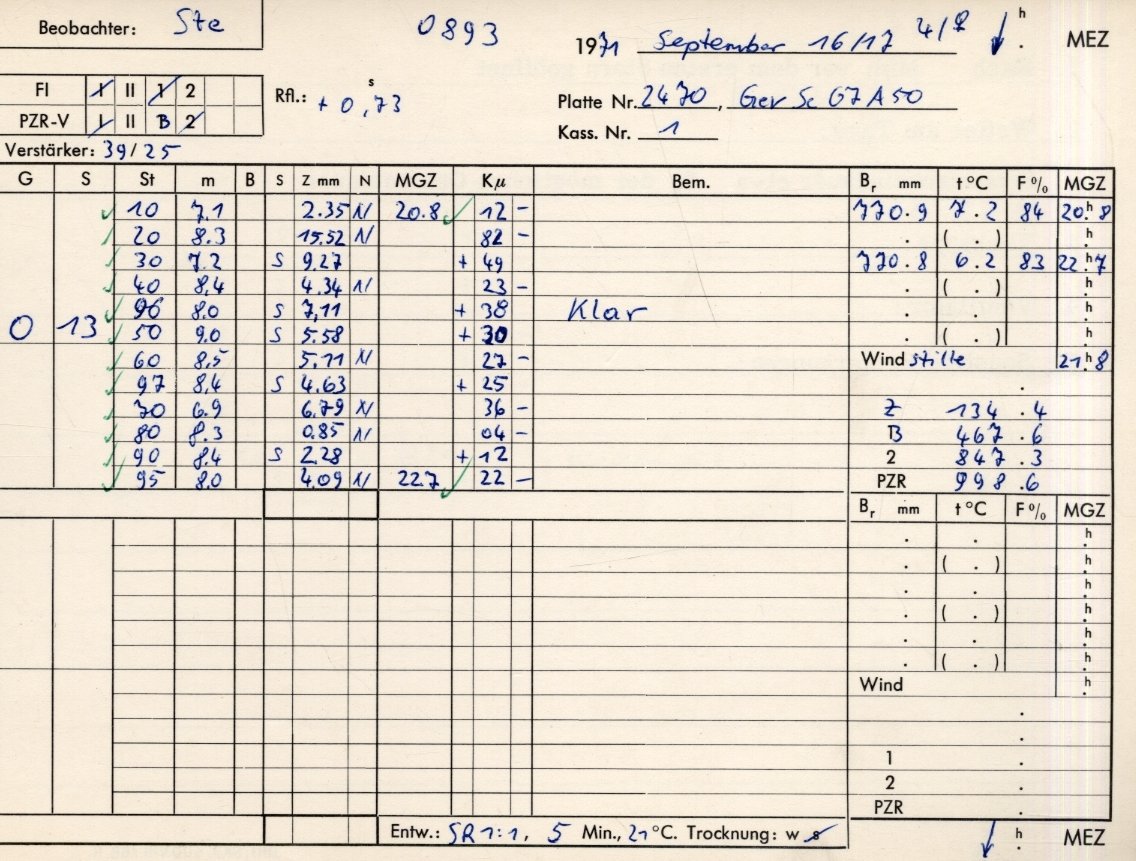 Beobachter: Ste 0893 1971 September 16/17 4/♀ ↓ h . MEZ
FI I II 1 2 Rfl.: + 0,73 s Platte Nr. 2470, Gev Sc 67 A 50
PZR-V I II B 2 Kass. Nr. 1
Verstärker: 39/25
G S St m B S Z mm N MGZ Kμ Bem. Br mm t °C F % MGZ
10 7.1 2.35 N 20.8 12 - 770.9 7.2 84 20.h 8
20 8.3 15.52 N 82 - . ( . ) h .
30 7.2 S 9.27 + 49 770.8 6.2 83 22.h 7
40 8,4 4.34 N 23 - . ( . ) h .
0 13 96 8.0 S 7,11 + 38 Klar . . h .
50 9.0 S 5.58 + 30 . ( . ) h .
60 8,5 5,11 N 27 - Wind stille 21.h 8
97 8,4 S 4.63 + 25 .
70 6.9 6.79 N 36 - Z 134.4
80 8.3 0.85 N 04 - B 467.6
90 8.4 S 2.28 + 12 2 847.3
95 8.0 4.09 N 22.7 22 - PZR 998.6
Br mm t °C F % MGZ
. . h .
. ( . ) h .
. . h .
. ( . ) h .
. . h .
. ( . ) h .
Wind h .
.
.
1 .
2 .
PZR .
Entw.: SR 1:1, 5 Min., 21 °C. Trocknung: w s ↓ h . MEZ